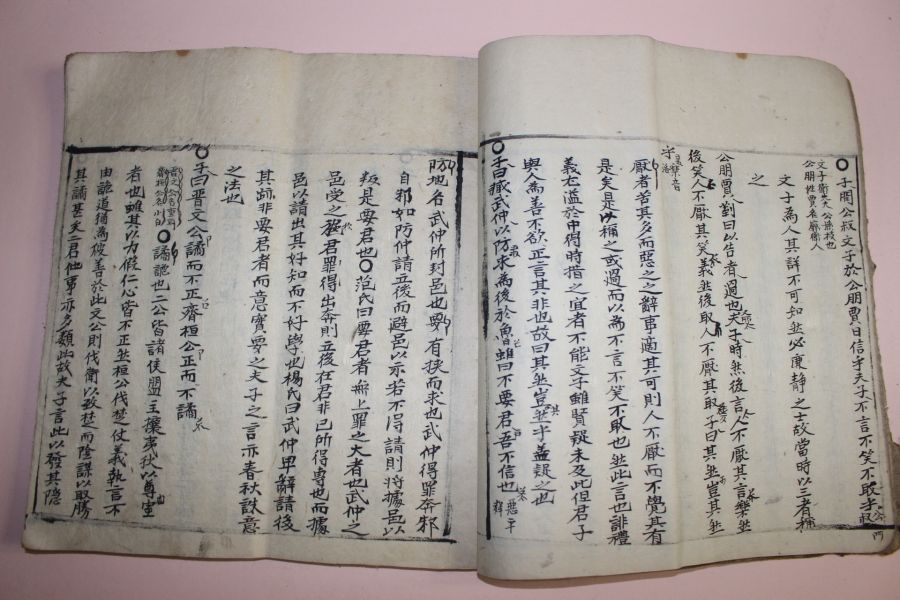 ○子問公叔文子於公朋賈曰信乎夫子不言不笑不取乎
文子衛大夫公孫枝也
公朋姓賈名亦衛人
文子為人其詳不可知然必廉靜之士故當時以三者稱
之
公朋賈對曰以告者過也夫子時然後言人不厭其言樂然
後笑人不厭其笑義然後取人不厭其取子曰其然豈其然
乎
厭者苦其多而惡之辭事適其可則人不厭而不覺其有
是矣是以稱之或過而以為不言不笑不取也然此言也誹禮
義充溢於中得時措之宜者不能文子雖賢疑未及此但君子
與人為善不欲正言其非也故曰其然豈然乎蓋疑之也
○子曰臧武仲以防求為後於魯雖曰不要君吾不信也
防地名武仲所封邑也要有挾而求也武仲得罪奔邾
自邾如防仲請立後而避邑以示若不得請則將據邑以
叛是要君也○范氏曰要君者無上罪之大者也武仲之
邑受之於君罪得出奔則立後在君非已所得專也而據
邑以請出其好知而不好學也楊氏曰武仲卑辭請後
其跡非要君者而意實要之夫子之言亦春秋誅意
之法也
○子曰晉文公譎而不正齊桓公正而不譎
○譎詭也二公皆諸侯盟主攘夷狄以尊室
者也雖其以力假仁心皆不正然桓公伐楚仗義執言不
由詭道猶為彼善於此文公則伐衛以致楚而陰謀以取勝
其譎甚矣二君他事亦多類此故夫子言此以發其隱